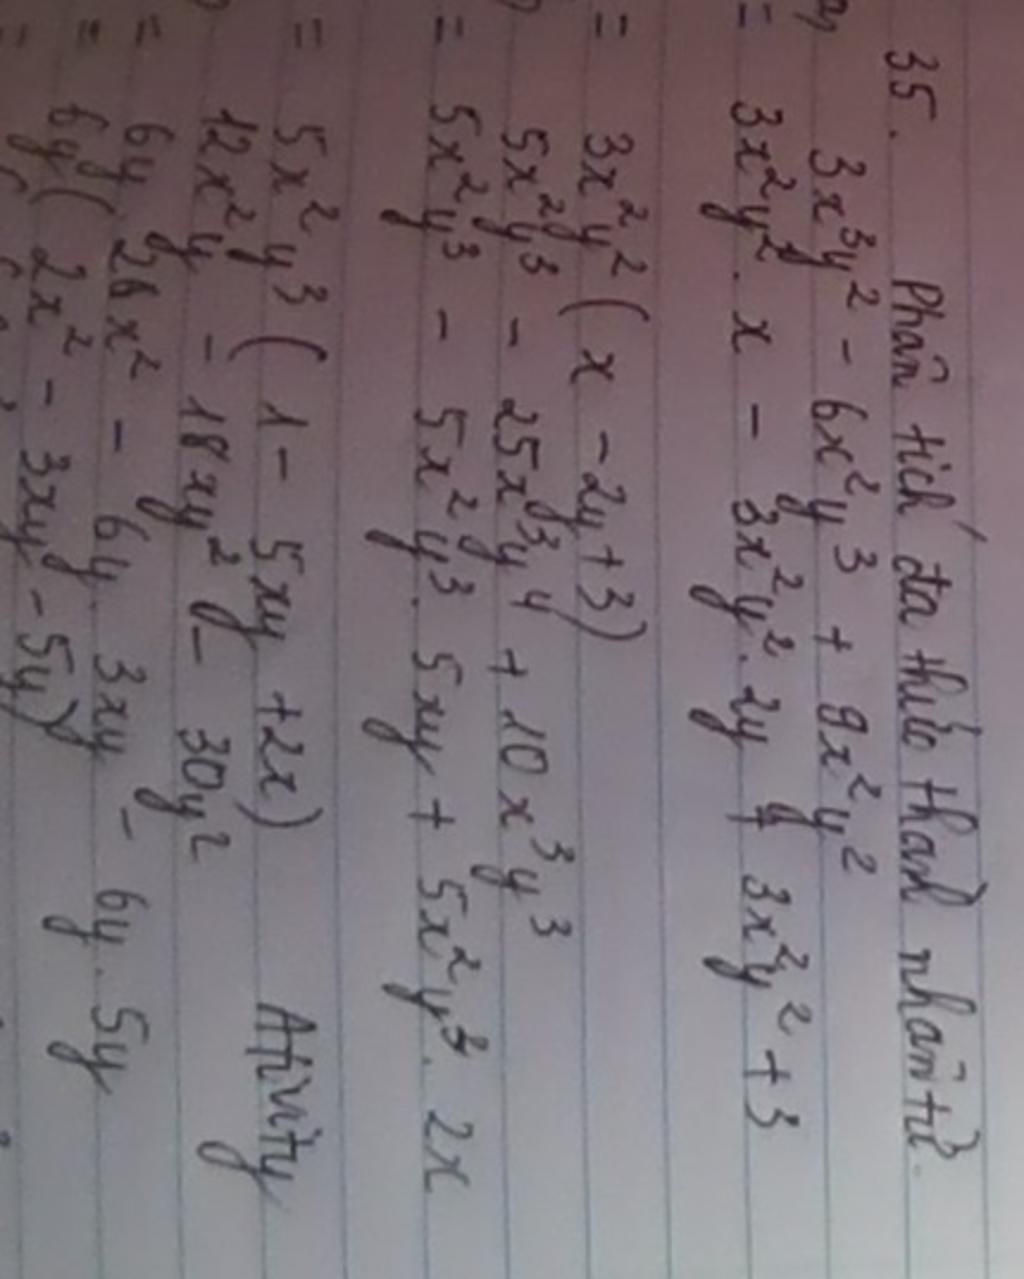 35. Phân tích đa thức thành nhân tử.
3x³y² - 6x²y³ + 9x²y²
= 3x²y². x - 3x²y². 2y + 3x²y² + 3
= 3x²y² ( x - 2y + 3)
5x²y³ - 25x³y⁴ + 10x³y³
= 5x²y³ - 5x²y³. 5xy + 5x²y³. 2x
= 5x²y³ ( 1 - 5xy + 2x) Ativity
12x²y - 18xy² - 30y²
= 6y. 2x² - 6y. 3xy - 6y. 5y
= 6y( 2x² - 3xy - 5y)
=